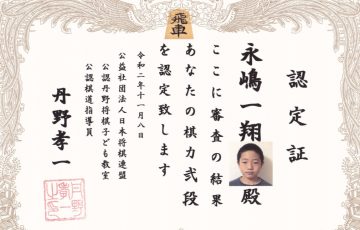 飛車
認定証
永嶋一翔殿
ここに審査の結果
あなたの棋力弐段
を認定致します
令和二年十一月八日
公益社団法人日本将棋連盟
公認丹野将棋子ども教室
公認棋道指導員
丹野孝一